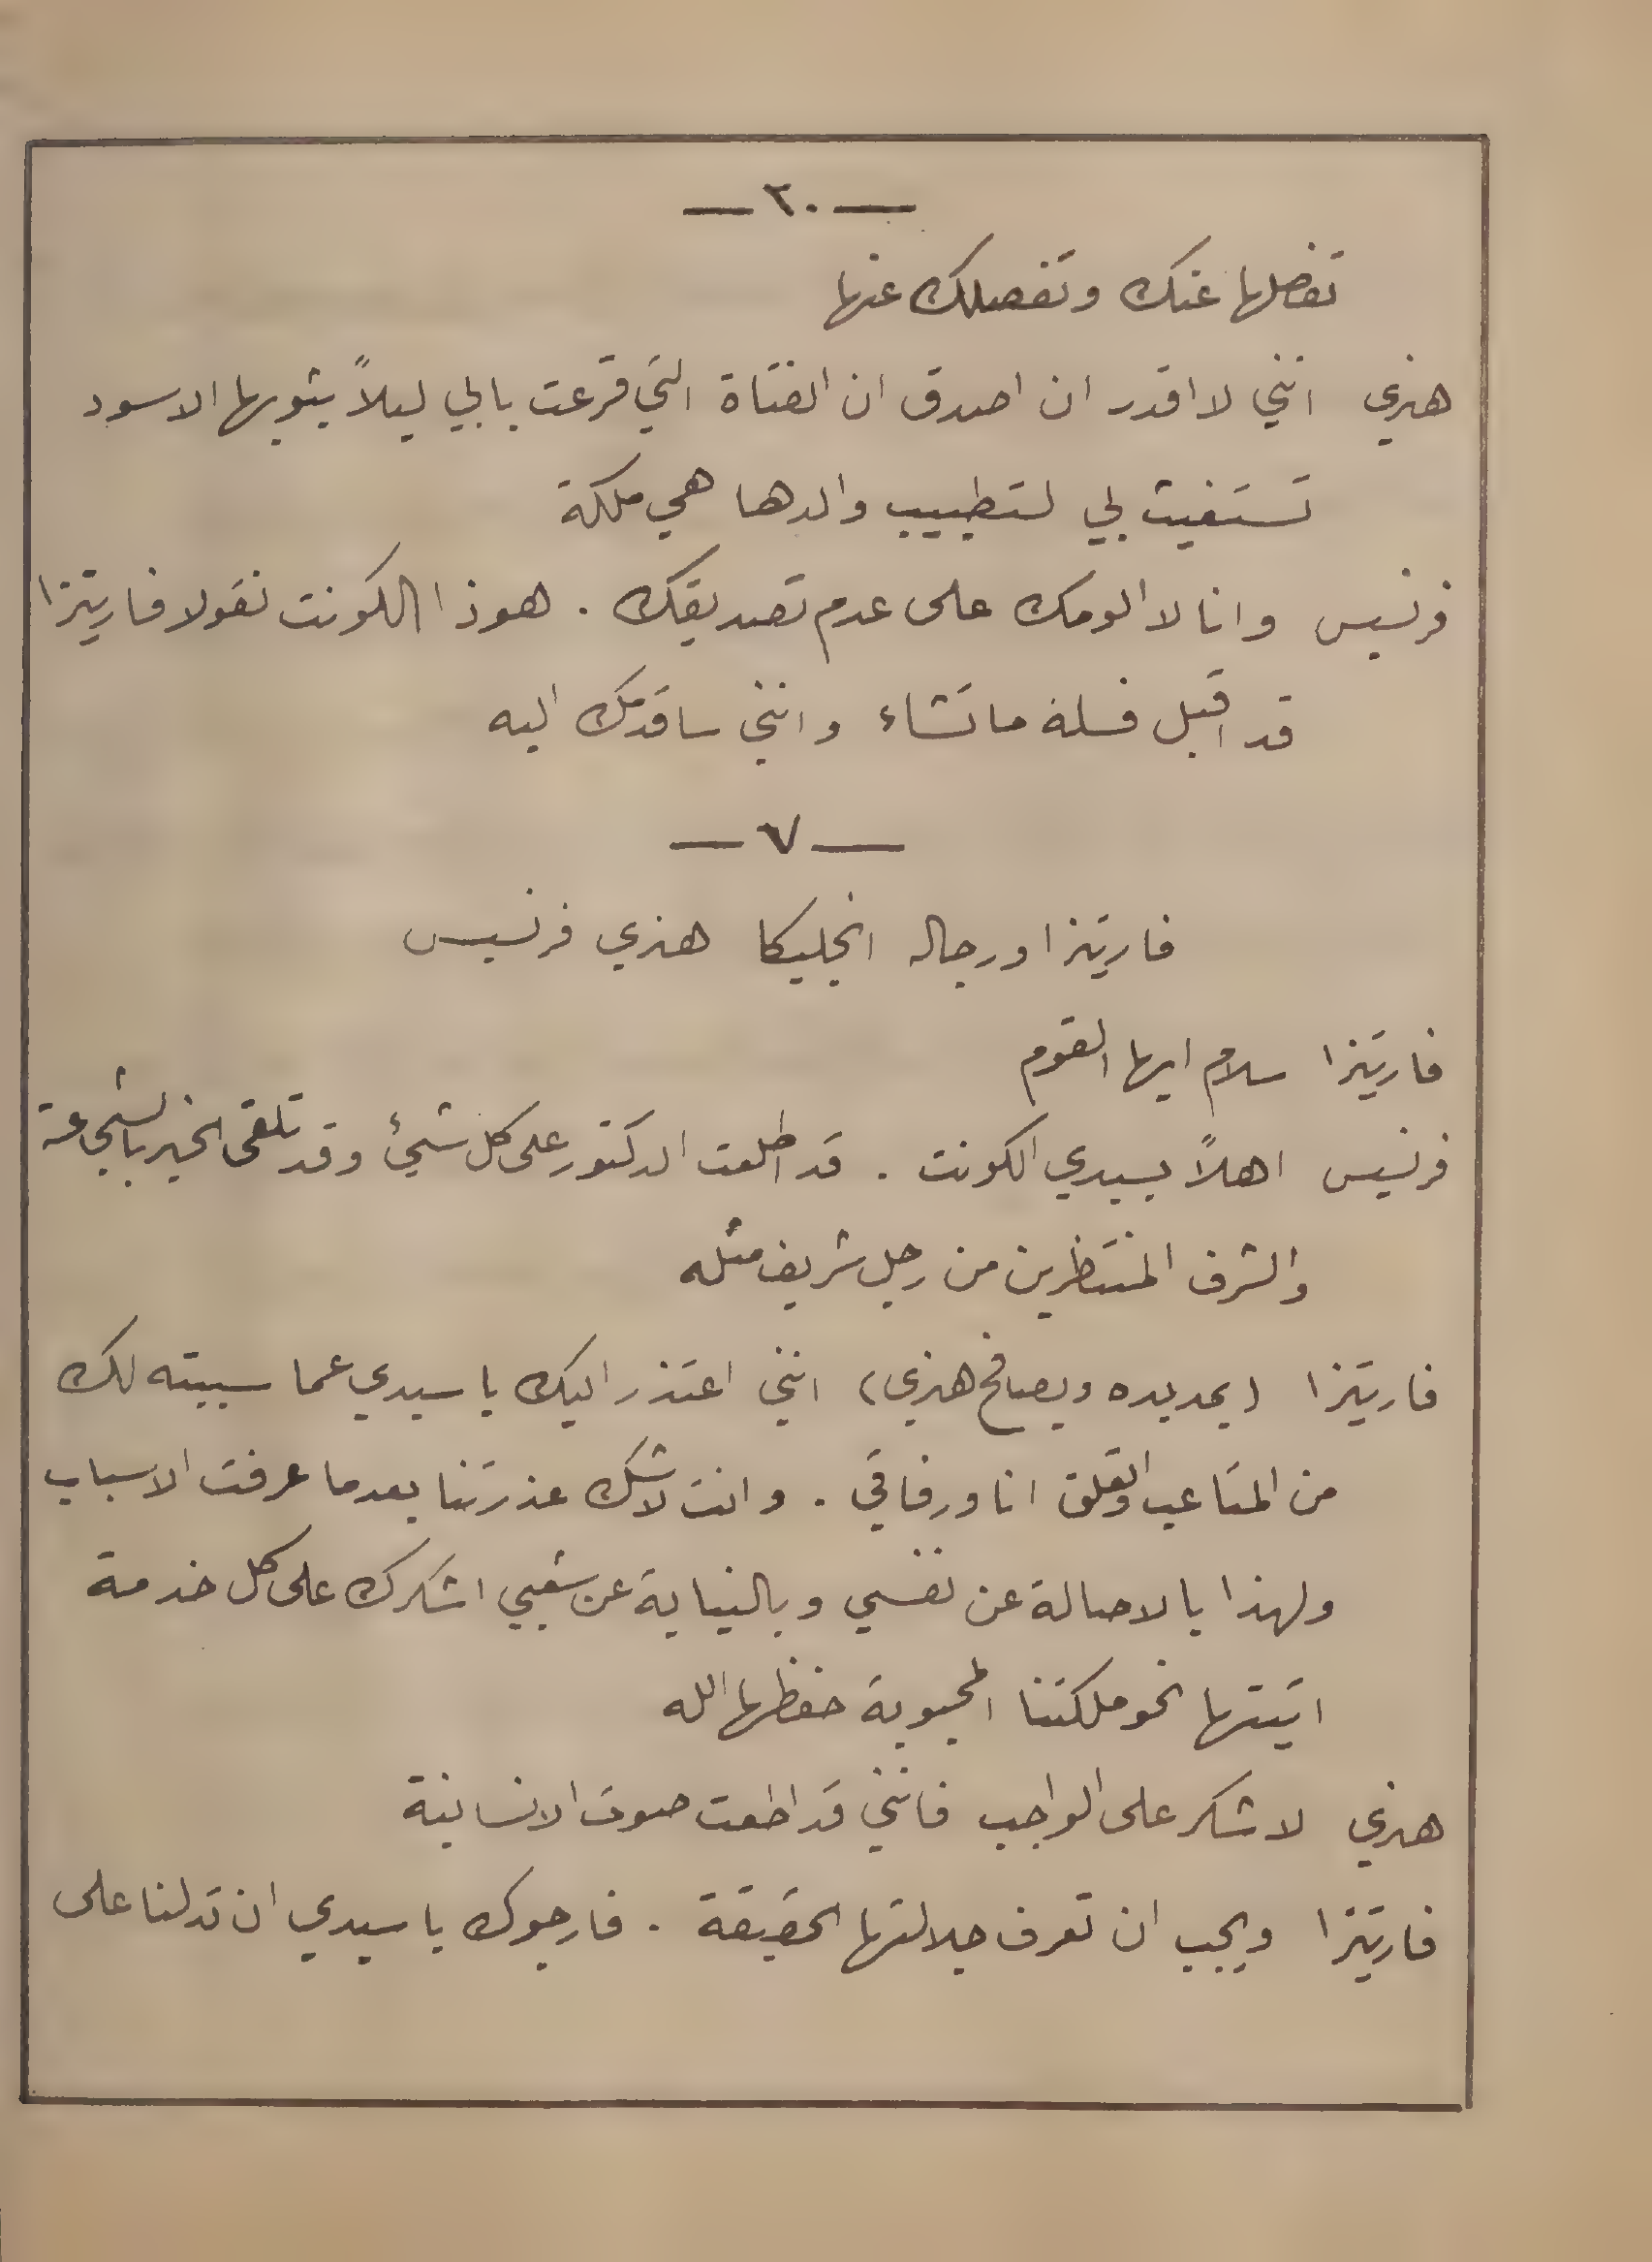 — ٢٠ —
تفصلها عنك وتفصلك عنها
هنري انني لا اقدر ان اصدق ان الفتاة التي قرعت بابي ليلاً بثوبها الاسود
تستغيث بي لتطبيب والدها هي ملكة
فرنسيس وانا لا الومك على عدم تصديقك . هوذا الكونت نقولا فاريتزا
قد اقبل فسله ما تشاء وانني ساقدمك اليه
— ٧ —
فاريتزا ورجاله انجليكا هنري فرنسيس
فاريتزا سلام ايها القوم
فرنسيس اهلاً بسيدي الكونت . قد اطلعت الدكتور على كل شيئ وقد تلقى الخبر بالشجاعة
والشرف المنتظرين من رجل شريف مثله
فاريتزا (يمد يده ويصافح هنري) انني اعتذر اليك يا سيدي عما سببته لك
من المتاعب والقلق انا ورفاقي . وانت لا شك عذرتنا بعدما عرفت الاسباب
ولهذا بالاصالة عن نفسي وبالنيابة عن شعبي اشكرك على كل خدمة
اتيتها نحو ملكتنا المحبوبة حفظها الله
هنري لا شكر على الواجب فانني قد اطعت صوت الانسانية
فاريتزا ويجب ان تعرف جلالتها الحقيقة . فارجوك يا سيدي ان تدلنا على